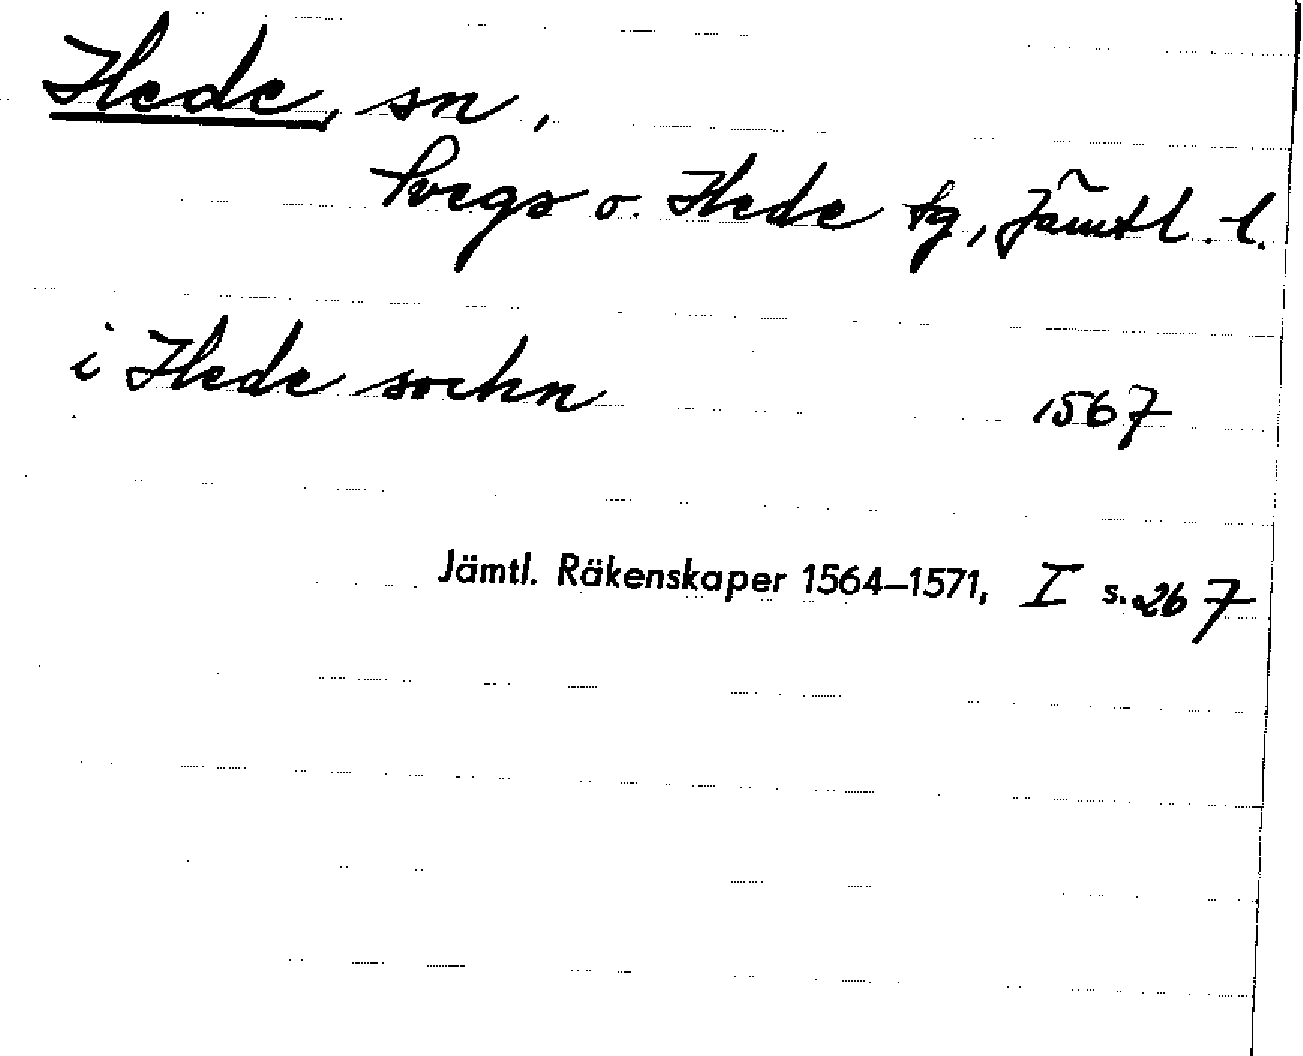 Hede, sn,
Svegs o. Hede tg, Jämtl. l.
i Hede sochn 1567
Jämtl. Räkenskaper 1564–1571, I s. 267